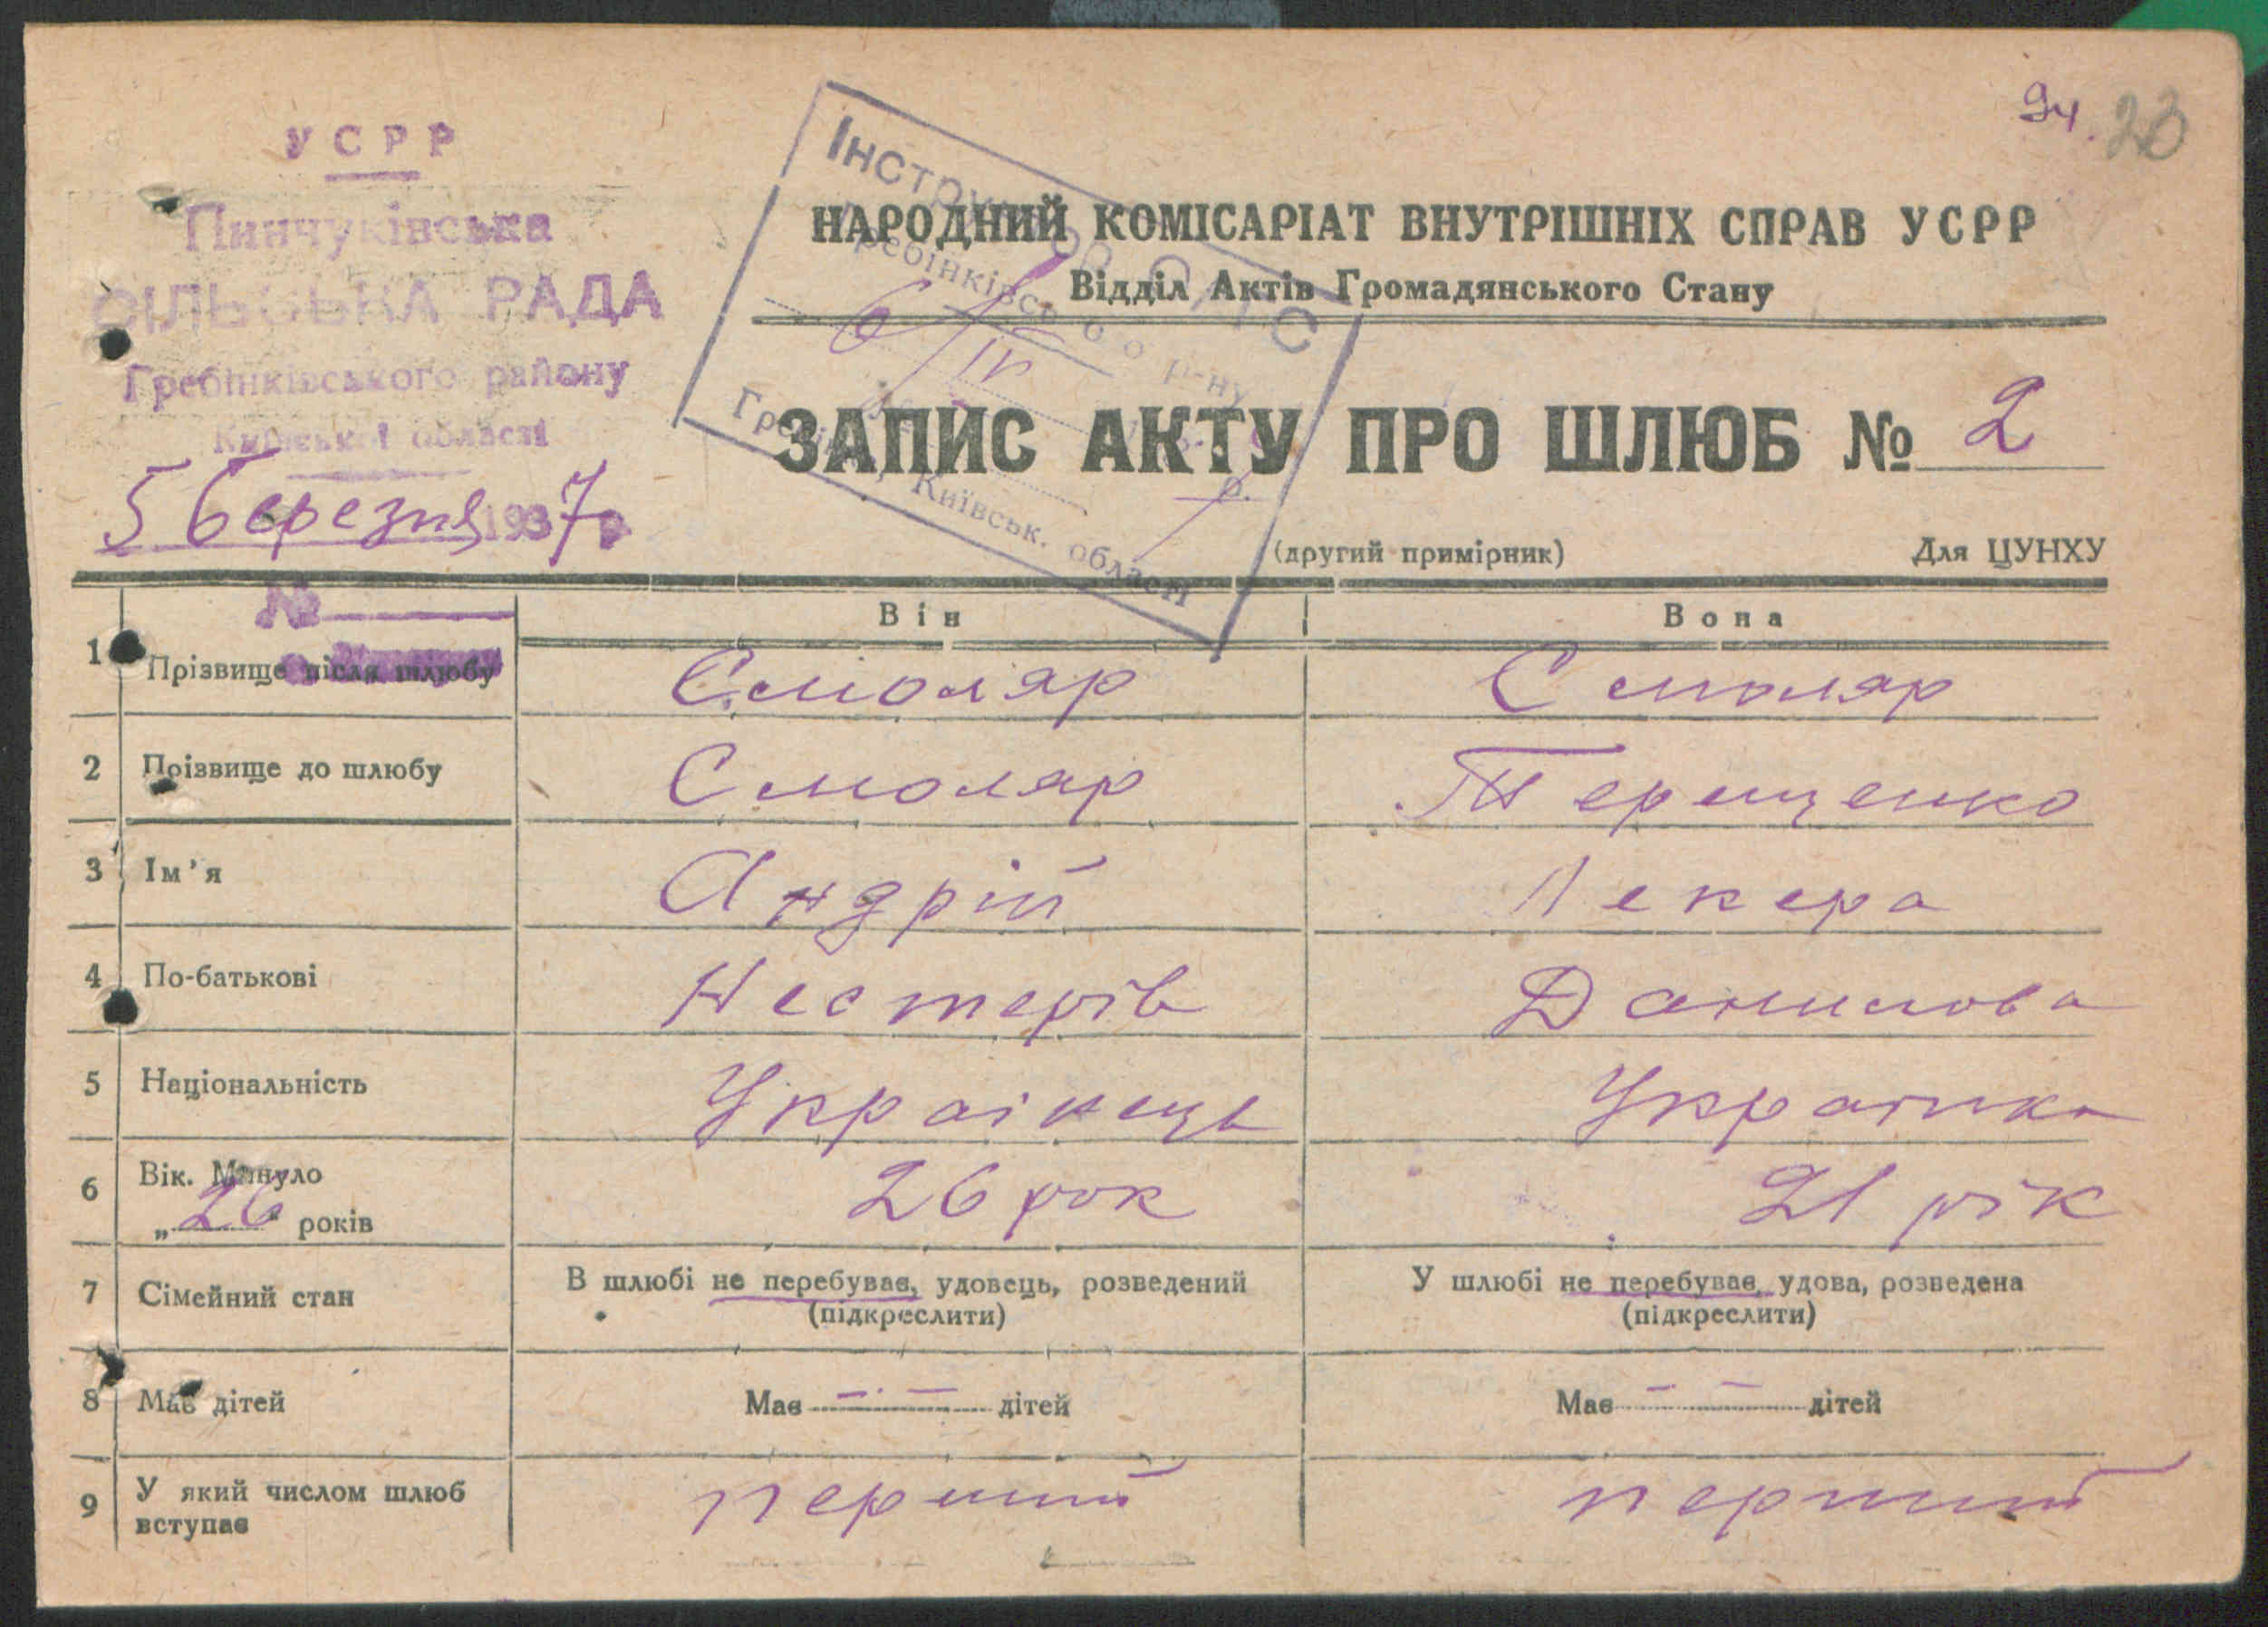 94. 23
УСРР
Пинчуківська
СІЛЬСЬКА РАДА
Гребінківського району
Київської області
5 березня 1937 р
№
Інструктор ОАГС
Гребінківського р-ну
6/IV
Київськ. області
НАРОДНИЙ КОМІСАРІАТ ВНУТРІШНІХ СПРАВ УСРР
Відділ Актів Громадянського Стану
ЗАПИС АКТУ ПРО ШЛЮБ № 2
(другий примірник) Для ЦУНХУ
Він Вона
1 Прізвище після шлюбу Смоляр Смоляр
2 Прізвище до шлюбу Смоляр Терещенко
3 Ім'я Андрій Лекера
4 По-батькові Нестерів Данилова
5 Національність Українець Українка
6 Вік. Минуло 26 рок 21 рік
„26“ років
7 Сімейний стан В шлюбі не перебував, удовець, розведений У шлюбі не перебував, удова, розведена
(підкреслити) (підкреслити)
8 Має дітей Має — — дітей Має — — дітей
9 У який числом шлюб перший перший
вступає